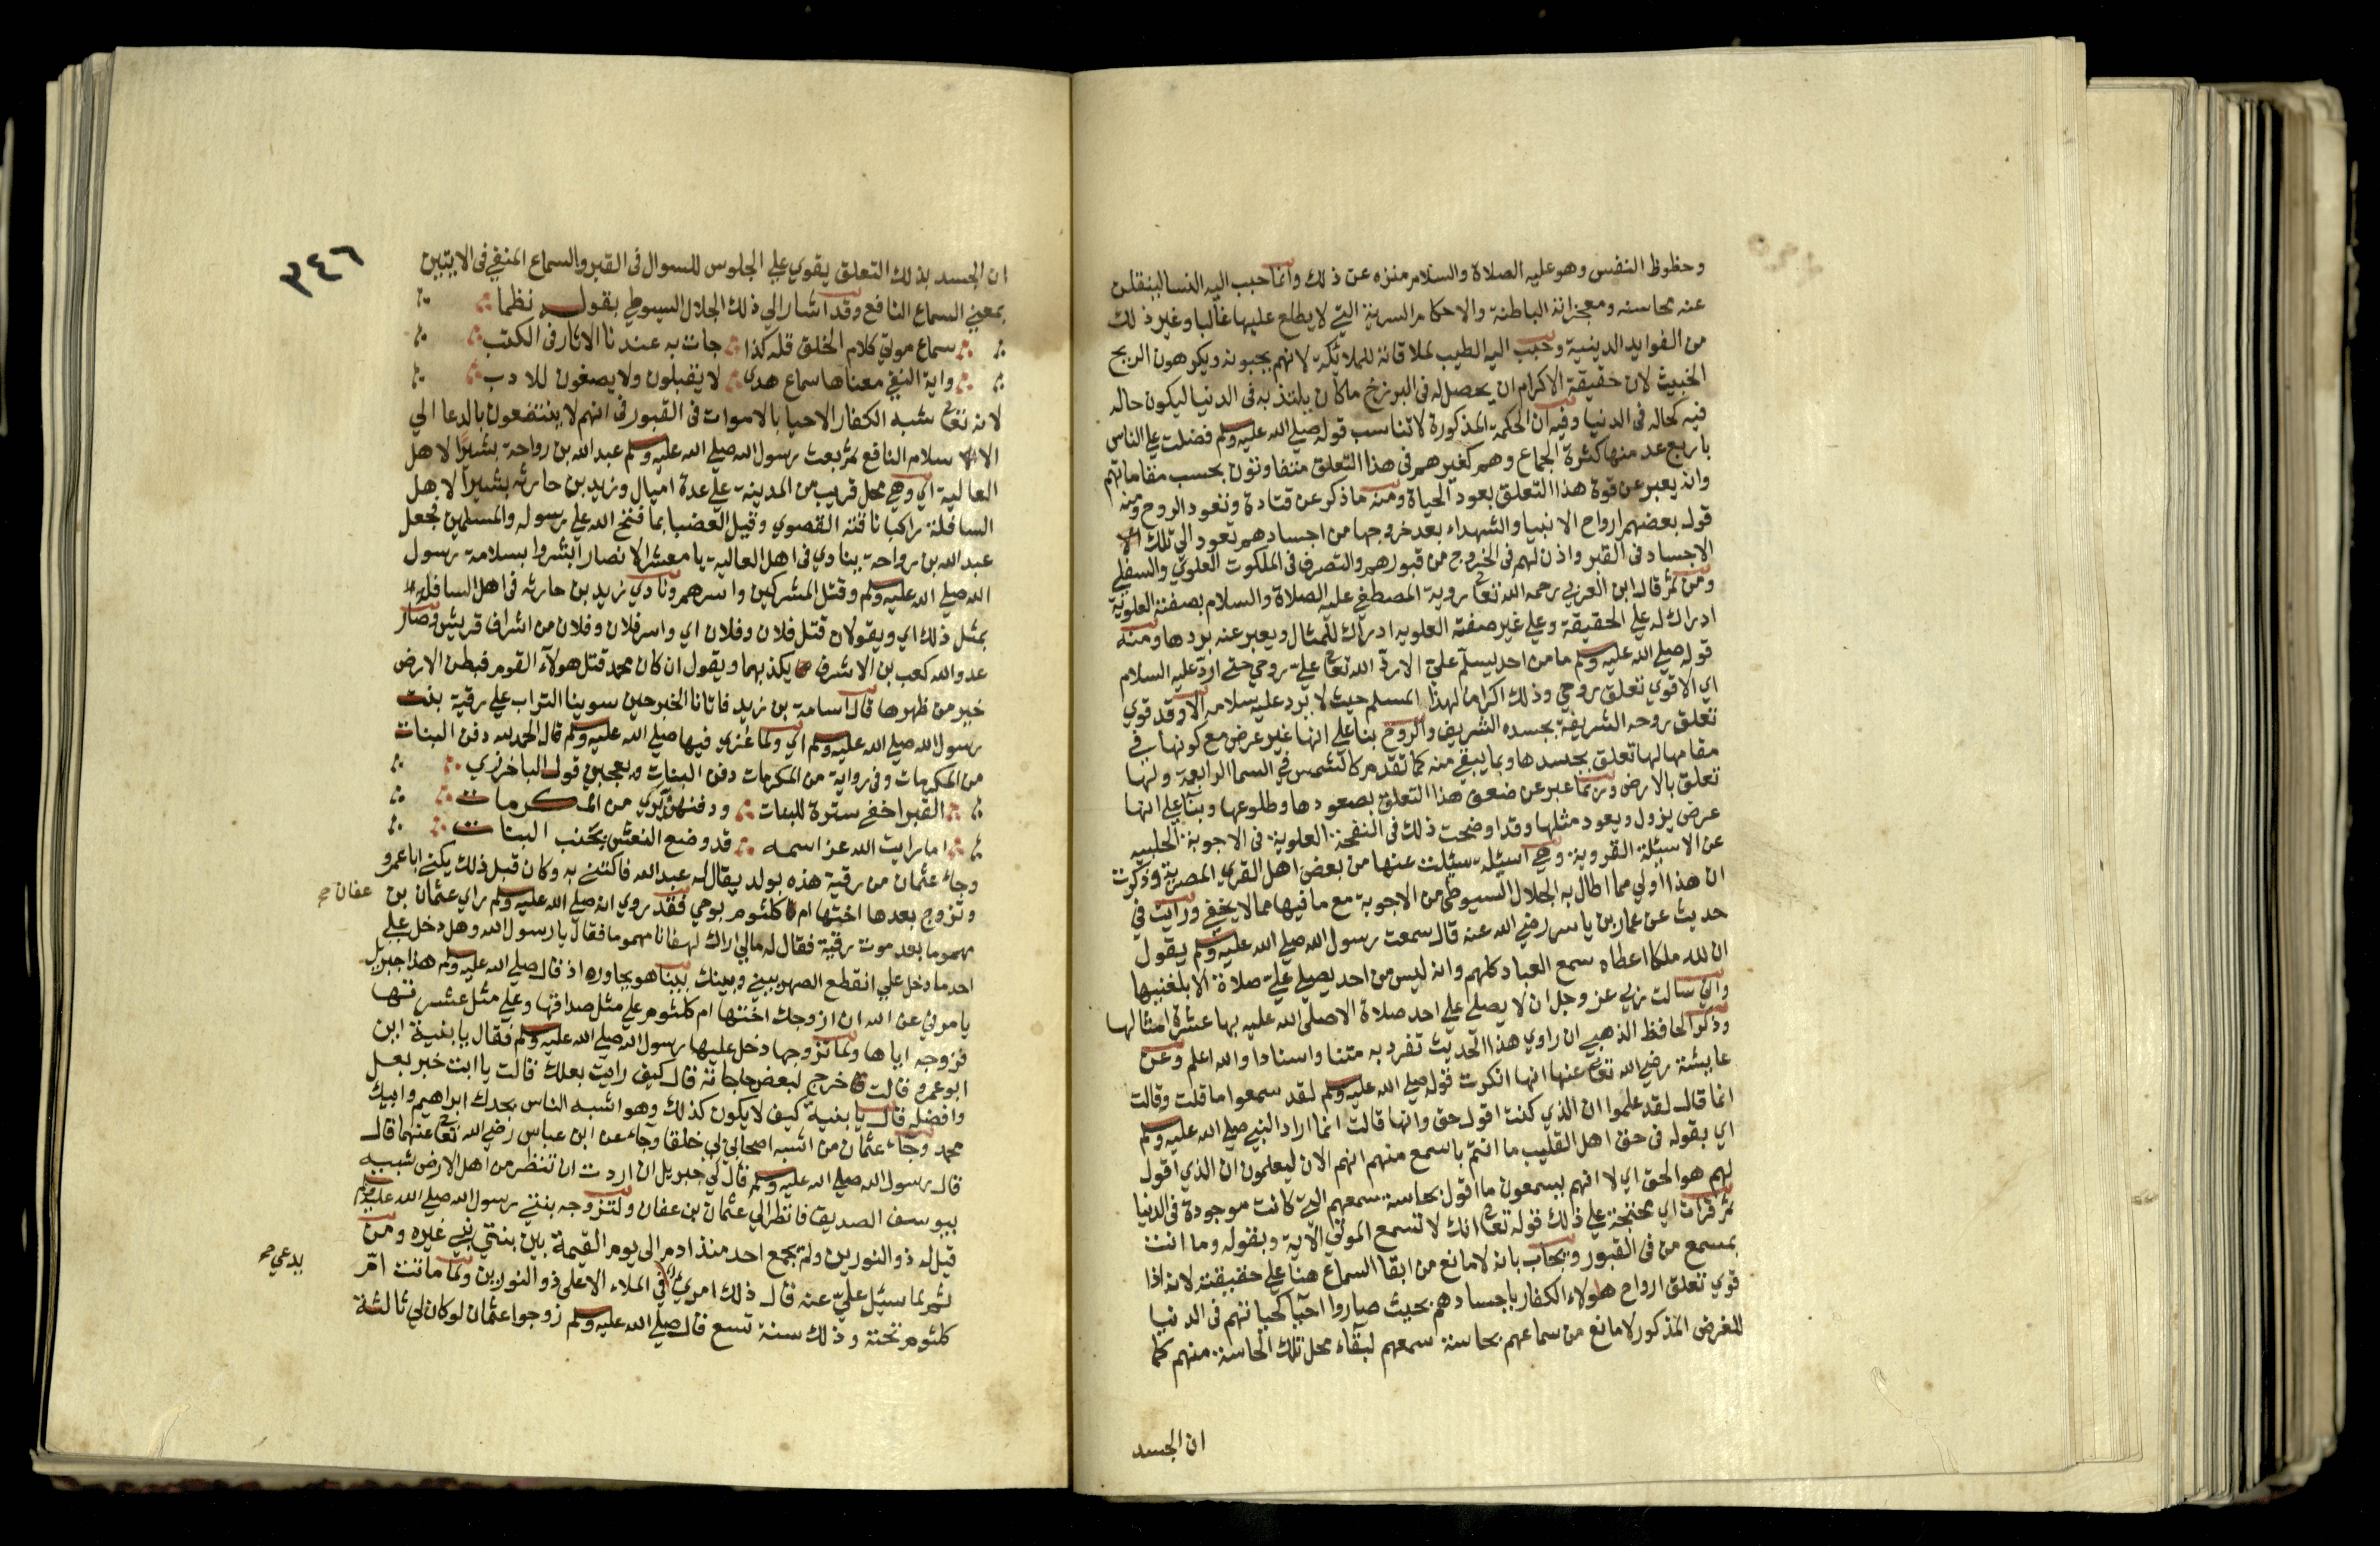 وحظوظ النفس وهو عليه الصلاة والسلام منزه عن ذلك وانما حبب اليه النسا لينقلن
عنه محاسنه ومعجزاته الباطنة والاحكام السرية التي لا يطلع عليها غالبا وغير ذلك
من الفوايد الدينية وحبب اليه الطيب لملاقاته للملائكة لانهم يحبونه ويكرهون الريح
الخبيث لان حقيقة الاكرام ان يحصل له في البرزخ ما كان يلتذ به في الدنيا ليكون حاله
فيه كحاله في الدنيا وفيه ان الحكمة المذكورة لا تناسب قوله صلي الله عليه وسلم فضلت علي الناس
باربع عد منها كثرة الجماع وهم كغيرهم في هذا التعلق متفاوتون بحسب مقاماتهم
وانه يعبر عن قوة هذا التعلق بعود الحياة ومنه ما ذكر عن قتادة وتعود الروح ومنه
قول بعضهم ارواح الانبيا والشهداء بعد خروجها من اجسادهم تعود الي تلك
الاجساد في القبر واذن لهم في الخروج من قبورهم والتصرف في الملكوت العلوي والسفلي
ومن ثم قال ابن العربي رحمه الله تعالى روية المصطفي عليه الصلاة والسلام بصفته العلوية
ادراك له علي الحقيقة وعلي غير صفته العلويه ادراك للمثال ويعبر عنه بردها ومنه
قوله صلي الله عليه وسلم ما من احد يسلم علي الا رد الله تعالى علي روحي حتي ارد عليه السلام
اي الا قوي تعلق روحي وذلك اكراما لهذا المسلم حيث لا يرد عليه سلامه الا وقد قوي
تعلق روحه الشريفة بجسده الشريف والروح بنا علي انها غير عرض مع كونها في
مقامها لها تعلق بجسدها وبما يبقي منه كما تقدم كالشمس في السما الرابعة ولها
تعلق بالارض وربما عبر عن ضعف هذا التعلق بصعودها وطلوعها وبنا علي انها
عرض يزول ويعود مثلها وقد اوضحت ذلك في النفحة العلوية في الاجوبة الحلبيه
عن الاسيلة القروية وهي اسيلة سيلت عنها من بعض اهل القري المصرية وذكرت
ان هذا اولي مما اطال به الجلال السيوطي من الاجوبة مع ما فيها مما لا يخفي ورايت في
حديث عن عمار بن ياسر رضي الله عنه قال سمعت رسول الله صلي الله عليه وسلم يقول
ان لله ملكا اعطاه سمع العباد كلهم وانه ليس من احد يصلي علي صلاة الا بلغنيها
واني سالت ربي عز وجل ان لا يصلي علي احد صلاة الا صلى الله عليه بها عشرة امثالها
وذكر الحافظ الذهبي ان راوي هذا الحديث تفرد به متنا واسنادا والله اعلم وعن
عايشة رضي الله تعالى عنها انها انكرت قوله صلي الله عليه وسلم لقد سمعوا ما قلت وقالت
انما قال لقد علموا ان الذي كنت اقول حق وانها قالت انما اراد النبي صلي الله عليه وسلم
اي بقوله في حق اهل القليب ما انتم باسمع منهم انهم الان ليعلمون ان الذي اقول
لهم هو الحق اي لا انهم يسمعون ما اقول بحاسة سمعهم التي كانت موجودة في الدنيا
ثم قرات اي محتجة علي ذلك قوله تعالى انك لا تسمع الموتي الاية وبقوله وما انت
بمسمع من في القبور ويجاب بانه لا مانع من ابقا السماع هنا علي حقيقته لانه اذا
قوي تعلق ارواح هولاء الكفار باجسادهم بحيث صاروا احيا كحياتهم في الدنيا
للغرض المذكور لا مانع من سماعهم بحاسة سمعهم لبقاء محل تلك الحاسة منهم كما
ان الجسد
٣٤٦
ان الجسد بذلك التعلق يقوي علي الجلوس للسوال في القبر والسماع المنفي في الايتين
بمعني السماع النافع وقد اشار الي ذلك الجلال السيوطي بقوله نظما
سماع موتي كلام الخلق قل كذا جات به عندنا الاثار في الكتب
واية النفي معناها سماع هدي لا يقبلون ولا يصغون للادب
لانه تعالى شبه الكفار الاحيا بالاموات في القبور في انهم لا ينتفعون بالدعا الي
الاسلام النافع ثم بعث رسول الله صلي الله عليه وسلم عبد الله بن رواحة بشيرا لاهل
العالية اي وهي محل قريب من المدينة علي عدة اميال وزيد بن حارثه بشيرا لاهل
السافلة راكبا ناقته القصوي وقيل العضبا بما فتح الله علي رسوله والمسلمين فجعل
عبد الله بن رواحة ينادي في اهل العالية يا معشر الانصار ابشروا بسلامة رسول
الله صلي الله عليه وسلم وقتل المشركين واسرهم ونادي زيد بن حارثه في اهل السافله
بمثل ذلك اي ويقولان قتل فلان وفلان اي واسر فلان وفلان من اشراف قريش وصار
عدو الله كعب بن الاشرف يكذبهما ويقول ان كان محمد قتل هولاء القوم فبطن الارض
خير من ظهرها قال اسامة بن زيد فاتانا الخبر حين سوينا التراب علي رقية بنت
رسول الله صلي الله عليه وسلم اي ولما عزي فيها صلي الله عليه وسلم قال الحمد لله دفن البنات
من المكرمات وفي رواية من المكرمات دفن البنات ويعجبني قول الباخرزي
القبر اخفي سترة للبنات ودفنهن يري من المكرمات
اما رايت الله عز اسمه قد وضع النعش بجنب البنات
وجاء عثمان من رقية هذه بولد يقال له عبد الله فاكتني به وكان قبل ذلك يكني ابا عمرو
وتزوج بعدها اختها ام كلثوم بوحي فقد روي انه صلي الله عليه وسلم راي عثمان بن
عفان صح
مهموما بعد موت رقية فقال له مالي اراك لهفانا مهموما فقال يا رسول الله وهل دخل علي
احد ما دخل علي انقطع الصهر بيني وبينك فبينا هو يحاوره اذ قال صلي الله عليه وسلم هذا جبريل
يامرني عن الله ان ازوجك اختها ام كلثوم علي مثل صداقها وعلي مثل عشرتها
فزوجه اياها ولما تزوجها دخل عليها رسول الله صلي الله عليه وسلم فقال يا بنية اين
ابو عمرو قالت خرج لبعض حاجاته قال كيف رايت بعلك قالت يا ابت خير بعل
وافضله فقال يا بنية كيف لا يكون كذلك وهو اشبه الناس بجدك ابراهيم وابيك
محمد وجاء عثمان من اشبه اصحابي بي خلقا وجاء عن ابن عباس رضي الله تعالى عنهما قال
قال رسول الله صلي الله عليه وسلم قال لي جبريل ان اردت ان تنظر من اهل الارض شبيه
بيوسف الصديق فانظر الي عثمان بن عفان ولتزوجه بنتي رسول الله صلي الله عليه وسلم
قيل له ذو النورين ولم يجمع احد منذ ادم الى يوم القيمة بين بنتي نبي غيره ومن
ثم لما سيل علي عنه قال ذلك امرء في الملاء الاعلى ذو النورين ولما ماتت ام
يدعي صح
كلثوم تحته وذلك سنة تسع قال صلي الله عليه وسلم زوجوا عثمان لو كان لي ثالثة